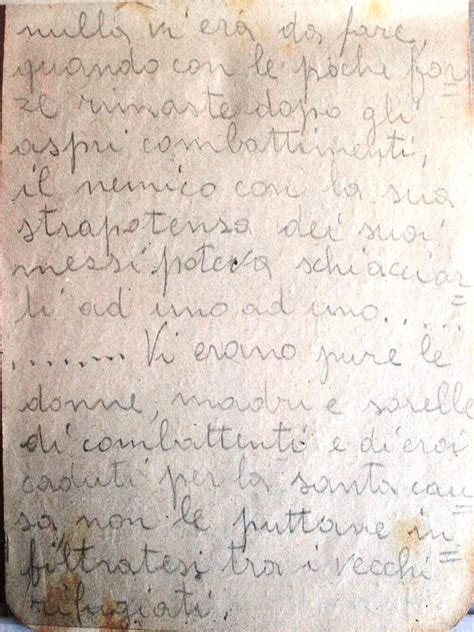 nulla v'era da fare,
quando con le poche for=
ze rimaste dopo gli
aspri combattimenti,
il nemico con la sua
strapotensa dei suoi
messi poteva schiacciar
li ad uno ad uno.....
........ Vi erano pure le
donne, madri e sorelle
di combattenti e di eroi
caduti per la santa cau
sa, non le puttane in=
filtratesi tra i vecchi
rifugiati.